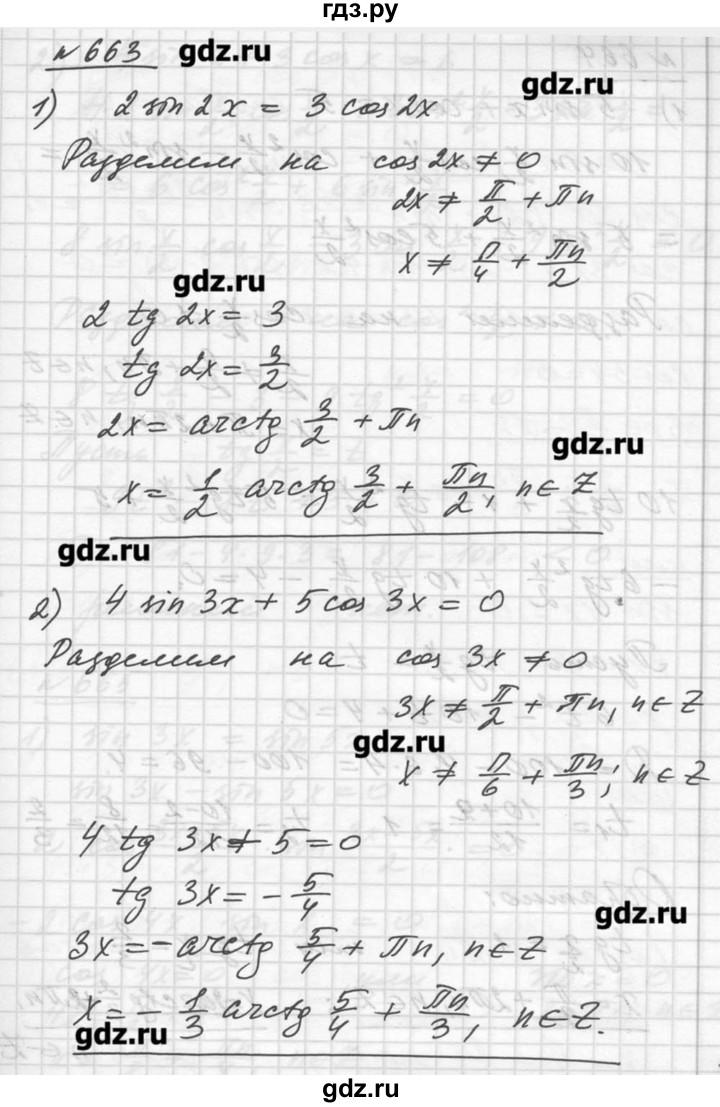 гдз.ру
№663 gdz.ru
gdz.ru
1) 2 sin 2x = 3 cos 2x
Разделим на cos 2x ≠ 0
2x ≠ π/2 + πn
x ≠ π/4 + πn/2
gdz.ru
2 tg 2x = 3
tg 2x = 3/2
2x = arctg 3/2 + πn
gdz.ru
x = 1/2 arctg 3/2 + πn/2, n ∈ Z
gdz.ru
2) 4 sin 3x + 5 cos 3x = 0
Разделим на cos 3x ≠ 0
3x ≠ π/2 + πn, n ∈ Z
gdz.ru
x ≠ π/6 + πn/3; n ∈ Z
4 tg 3x + 5 = 0
tg 3x = - 5/4
gdz.ru
3x = - arctg 5/4 + πn, n ∈ Z
x = - 1/3 arctg 5/4 + πn/3, n ∈ Z.
gdz.ru
gdz.ru